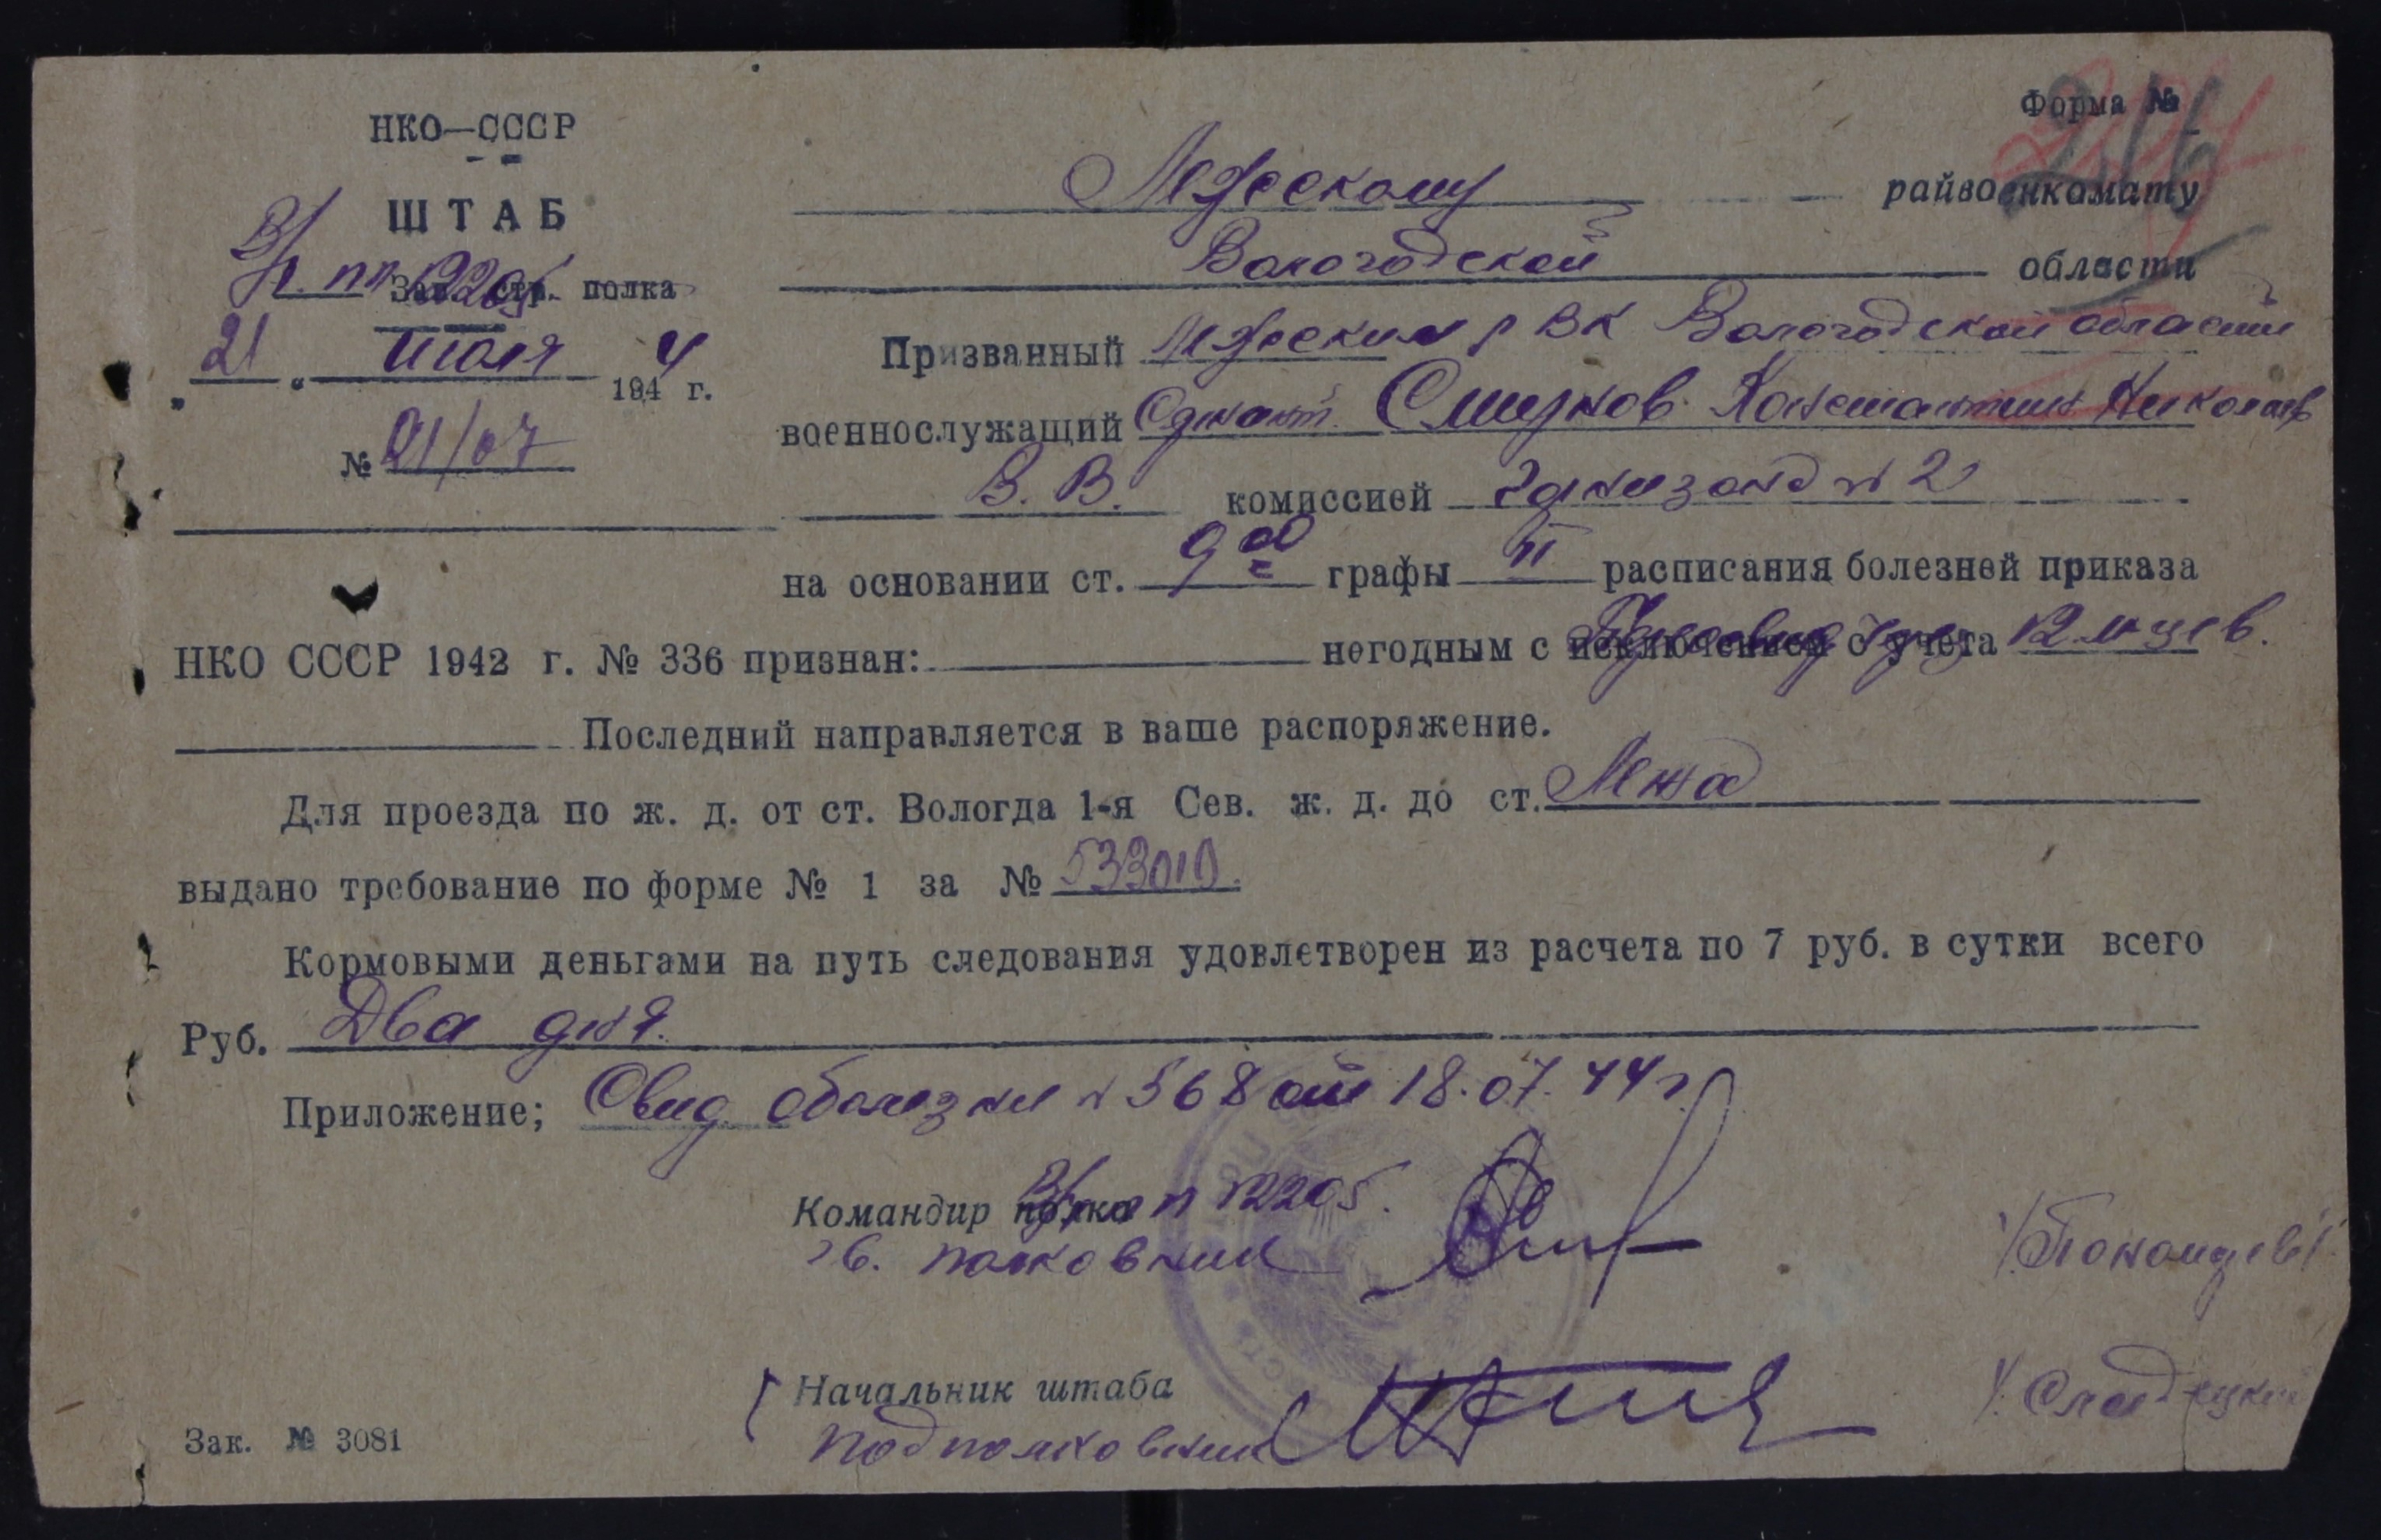 Форма №
216
НКО—СССР
ШТАБ
В/ч. пп 12205
Зап. стр. полка
„21“ июля 1944 г.
№ 21/07
Лежскому райвоенкомату
Вологодской области
Призванный Лежским РВК Вологодской области
военнослужащий Сержант. Смирнов Константин Николаев
В. В. комиссией
на основании ст. 9а графы II расписания болезней приказа
НКО СССР 1942 г. № 336 признан: негодным с исключением с учета 12 м-цев.
Последний направляется в ваше распоряжение.
Для проезда по ж. д. от ст. Вологда 1-я Сев. ж. д. до ст. Лежа
выдано требование по форме № 1 за № 533010.
Кормовыми деньгами на путь следования удовлетворен из расчета по 7 руб. в сутки всего
Руб. Два дня.
Приложение; Свид. о болезни № 568 от 18.07.44 г.
Командир полка В/ч пп 12205.
гв. полковник
Начальник штаба
подполковник
Зак. № 3081